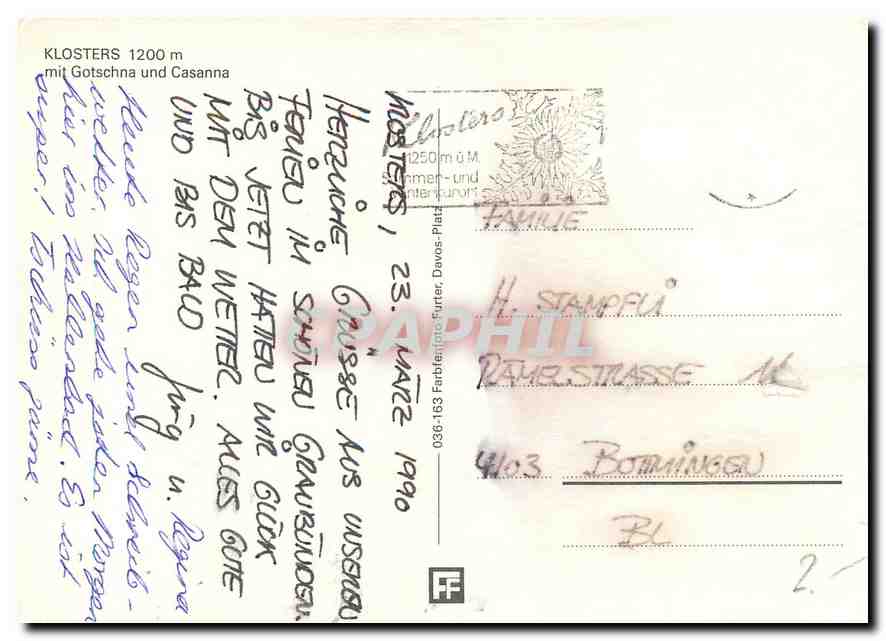 KLOSTERS 1200 m
mit Gotschna und Casanna
KLOSTERS, 23. MÄRZ 1990
HERZLICHE GRÜSSE AUS UNSEREN
FERIEN IM SCHÖNEN GRAUBÜNDEN.
BIS JETZT HATTEN WIR GLÜCK
MIT DEM WETTER. ALLES GUTE
UND BIS BALD
Jürg u. Regina
Heute Regen und Schneib-
wetter. Ich gehe jeden Morgen
hier ins Hallenbad. Es ist
super! Tschüss zäme.
036-163 Farbfenfoto Furter, Davos-Platz
Klosters
1250 m ü M.
Sommer- und
Winterkurort
FAMILIE
H. STAMPFLI
RÄMELSTRASSE
4103 BOTTMINGEN
BL
2.-
FF
CPAPHIL